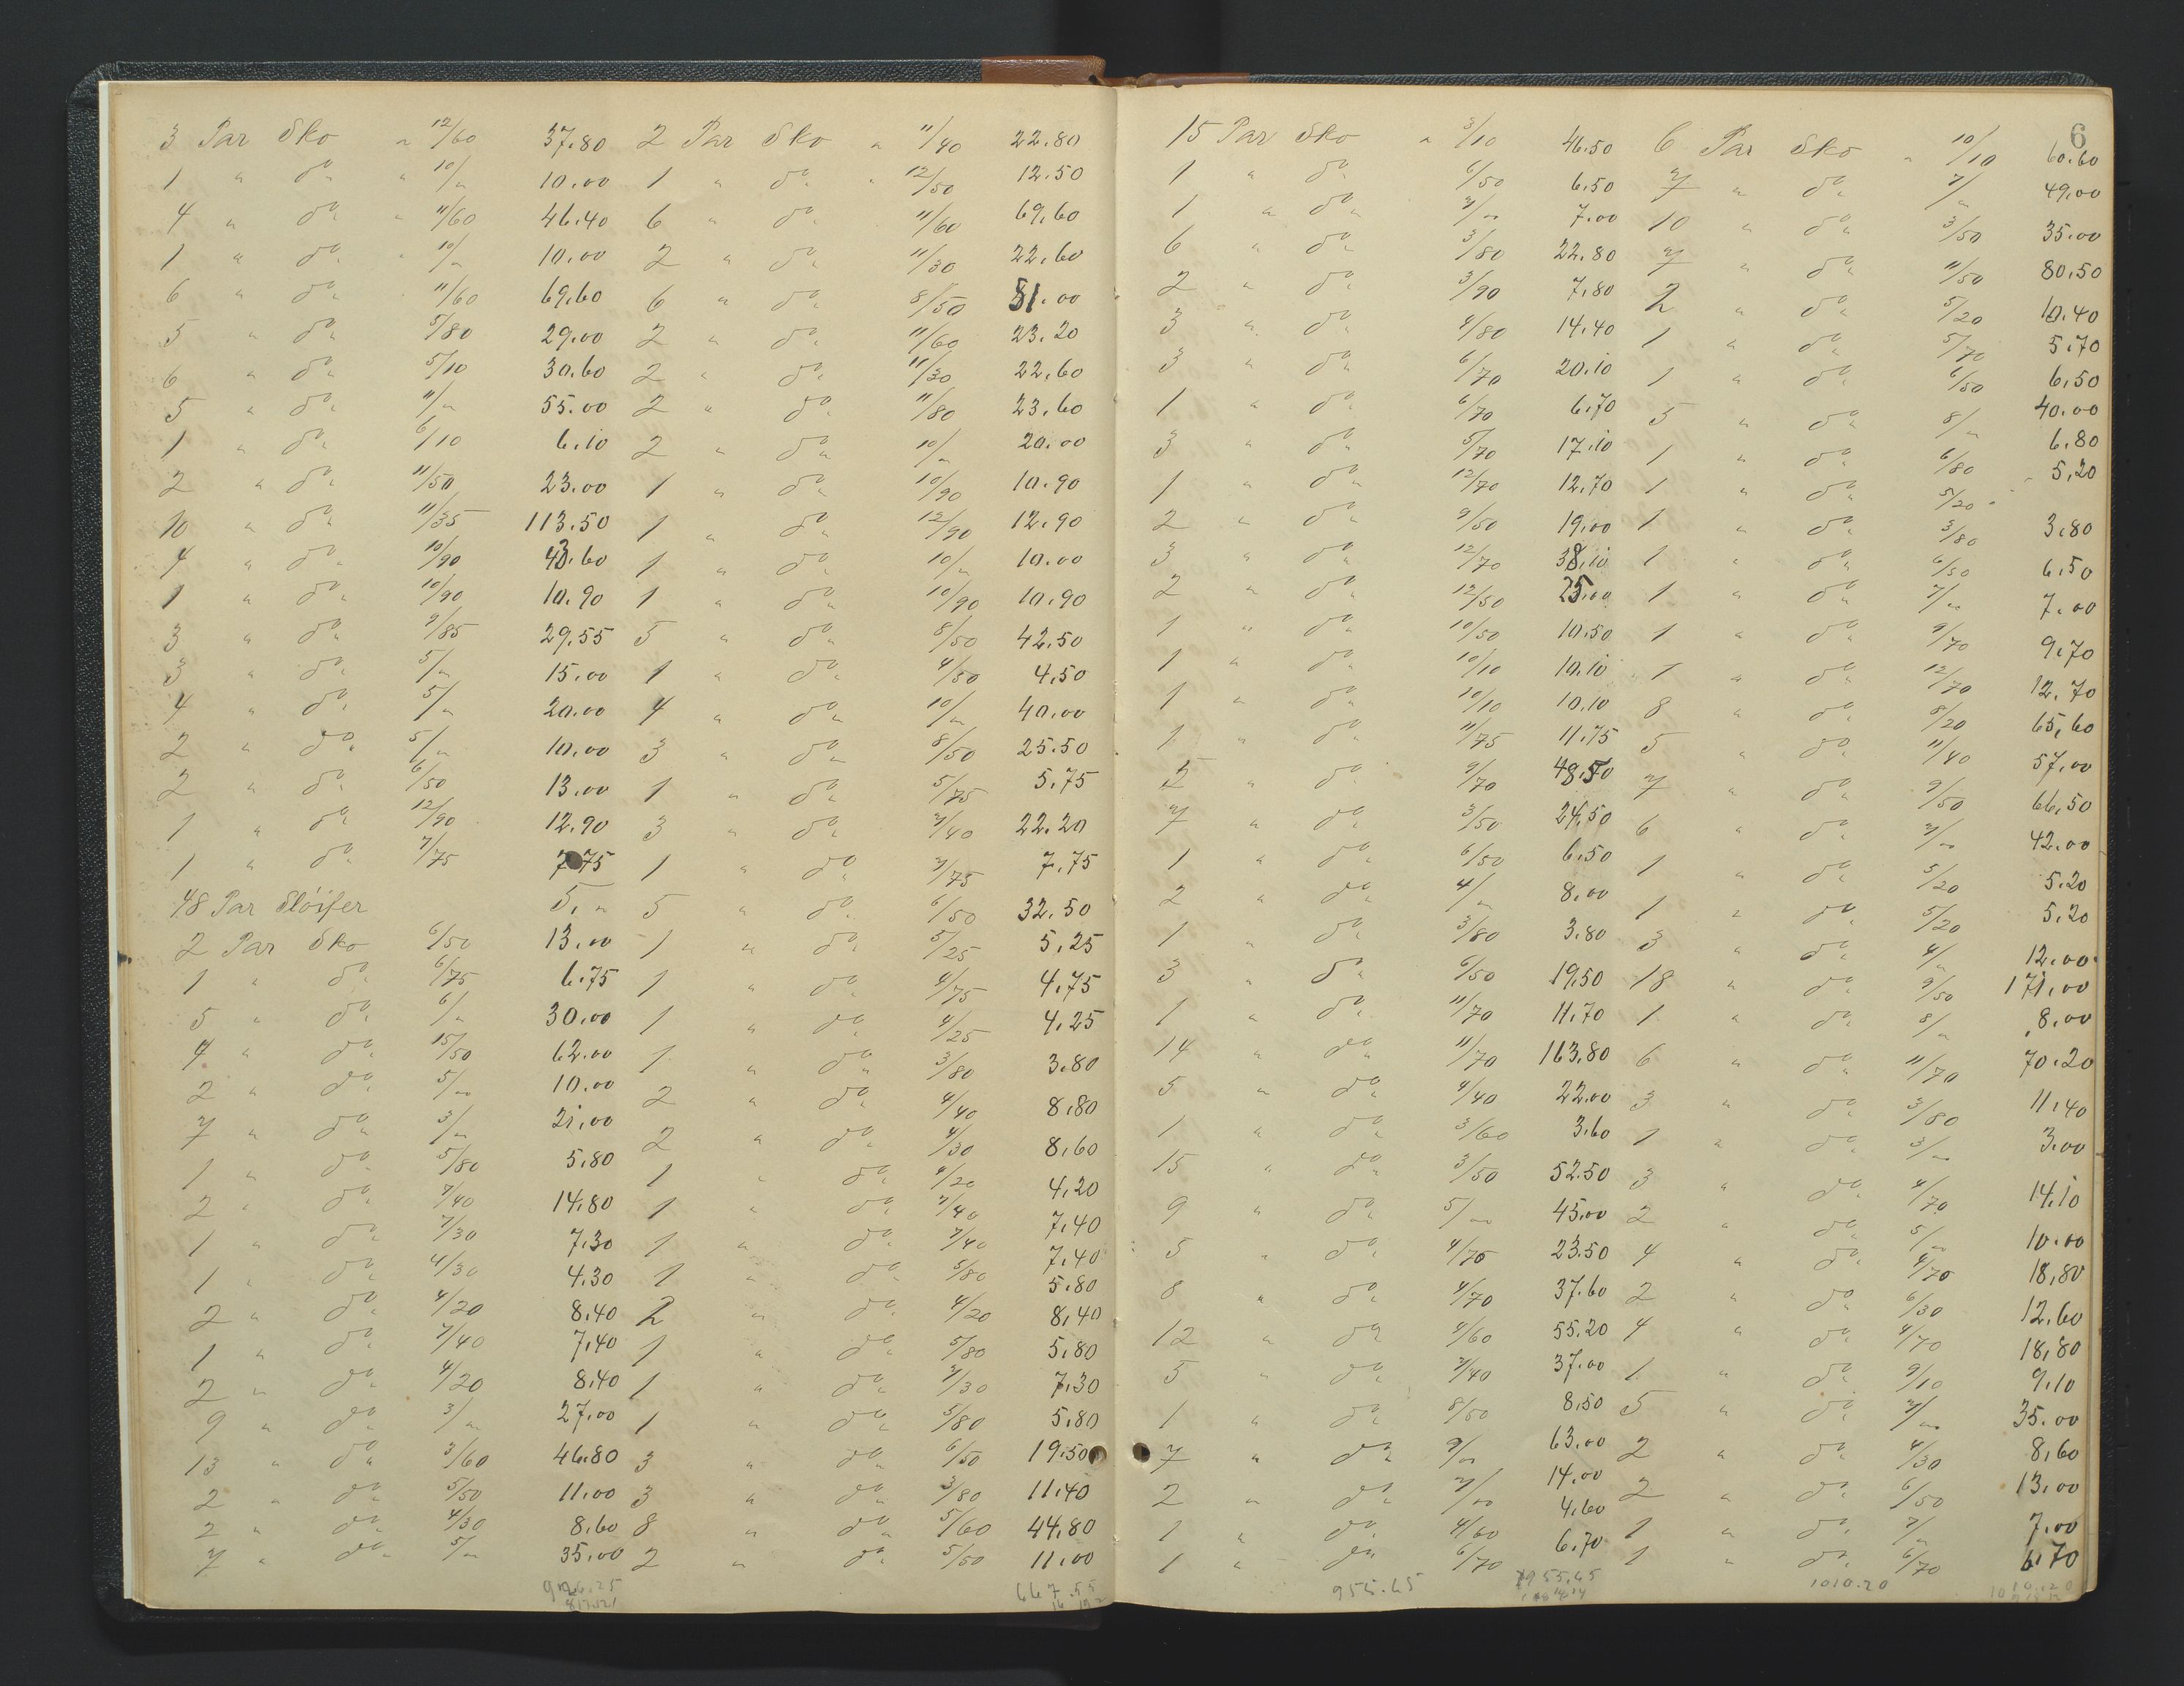 3 Par Sko " 12/60 37.80
1 " do " 10/" 10.00
4 " do " 11/60 46.40
1 " do " 10/" 10.00
6 " do 11/60 69.60
5 " do 5/80 29.00
6 " do 5/10 30.60
5 " do 11/" 55.00
1 " do 6/10 6.10
2 " do 11/50 23.00
10 " do 11/35 113.50
4 " do 10/90 43.60
1 " do 10/90 10.90
3 " do 9/85 29.55
3 " do 5/" 15.00
4 " do 5/" 20.00
2 " do 5/" 10.00
2 " do 6/50 13.00
1 " do 12/90 12.90
1 " do 7/75 7.75
48 Par Slöifer 5."
2 Par Sko 6/50 13.00
1 " do 6/75 6.75
5 " do 6/" 30.00
4 " do 15/50 62.00
2 " do 5/" 10.00
7 " do 3/" 21.00
1 " do 5/80 5.80
2 " do 7/40 14.80
1 " do 7/30 7.30
1 " do 4/30 4.30
2 " do 4/20 8.40
1 " do 7/40 7.40
2 " do 4/20 8.40
9 " do 3/" 27.00
13 " do 3/60 46.80
2 " do 5/50 11.00
2 " do 4/30 8.60
7 " do 5/" 35.00
2 Par Sko " 11/40 22.80
1 " do " 12/50 12.50
6 " do 11/60 69.60
2 " do 11/30 22.60
6 " do 8/50 51.00
2 " do 11/60 23.20
2 " do 11/30 22.60
2 " do 11/80 23.60
2 " do 10/" 20.00
1 " do 10/90 10.90
1 " do 12/90 12.90
1 " do 10/" 10.00
1 " do 10/90 10.90
5 " do 8/50 42.50
1 " do 4/50 4.50
4 " do 10/" 40.00
3 " do 8/50 25.50
1 " do 5/75 5.75
3 " do 7/40 22.20
1 " do 7/75 7.75
5 " do 6/50 32.50
1 " do 5/25 5.25
1 " do 4/75 4.75
1 " do 4/25 4.25
1 " do 3/80 3.80
2 " do 4/40 8.80
2 " do 4/30 8.60
1 " do 4/20 4.20
1 " do 7/40 7.40
1 " do 7/40 7.40
1 " do 5/80 5.80
2 " do 4/20 8.40
1 " do 5/80 5.80
1 " do 7/30 7.30
1 " do 5/80 5.80
3 " do 6/50 19.50
3 " do 3/80 11.40
8 " do 5/60 44.80
2 " do 5/50 11.00
667.55
6
15 Par Sko " 3/10 46.50
1 " do 6/50 6.50
1 " do 7/" 7.00
6 " do 3/80 22.80
2 " do 3/90 7.80
3 " do 4/80 14.40
3 " do 6/70 20.10
1 " do 6/70 6.70
3 " do 5/70 17.10
1 " do 12/70 12.70
2 " do 9/50 19.00
3 " do 12/70 38.10
2 " do 12/50 25.00
1 " do 10/50 10.50
1 " do 10/10 10.10
1 " do 10/10 10.10
1 " do 11/75 11.75
5 " do 9/70 48.50
7 " do 3/50 24.50
1 " do 6/50 6.50
2 " do 4/" 8.00
1 " do 3/80 3.80
3 " do 6/50 19.50
1 " do 11/70 11.70
14 " do 11/70 163.80
5 " do 4/40 22.00
1 " do 3/60 3.60
15 " do 3/50 52.50
9 " do 5/" 45.00
5 " do 4/70 23.50
8 " do 4/70 37.60
12 " do 4/60 55.20
5 " do 7/40 37.00
1 " do 8/50 8.50
7 " do 9/" 63.00
2 " do 7/" 14.00
1 " do 4/60 4.60
1 " do 6/70 6.70
955.65 955.65
6 Par Sko " 10/10 60.60
7 " do 7/" 49.00
10 " do 3/50 35.00
7 " do 11/50 80.50
2 " do 5/20 10.40
1 " do 5/70 5.70
1 " do 6/50 6.50
5 " do 8/" 40.00
1 " do 6/80 6.80
1 " do 5/20 5.20
1 " do 3/80 3.80
1 " do 6/50 6.50
1 " do 7/" 7.00
1 " do 9/70 9.70
1 " do 12/70 12.70
8 " do 8/20 65.60
5 " do 11/40 57.00
7 " do 9/50 66.50
6 " do 7/" 42.00
1 " do 5/20 5.20
1 " do 5/20 5.20
3 " do 4/" 12.00
18 " do 9/50 171.00
1 " do 8/" 8.00
6 " do 11/70 70.20
3 " do 3/80 11.40
1 " do 3/" 3.00
3 " do 4/70 14.10
2 " do 5/" 10.00
4 " do 4/70 18.80
2 " do 6/30 12.60
4 " do 4/70 18.80
1 " do 9/10 9.10
5 " do 7/" 35.00
2 " do 4/30 8.60
2 " do 6/50 13.00
1 " do 7/" 7.00
1 " do 6/70 6.70
1010.20